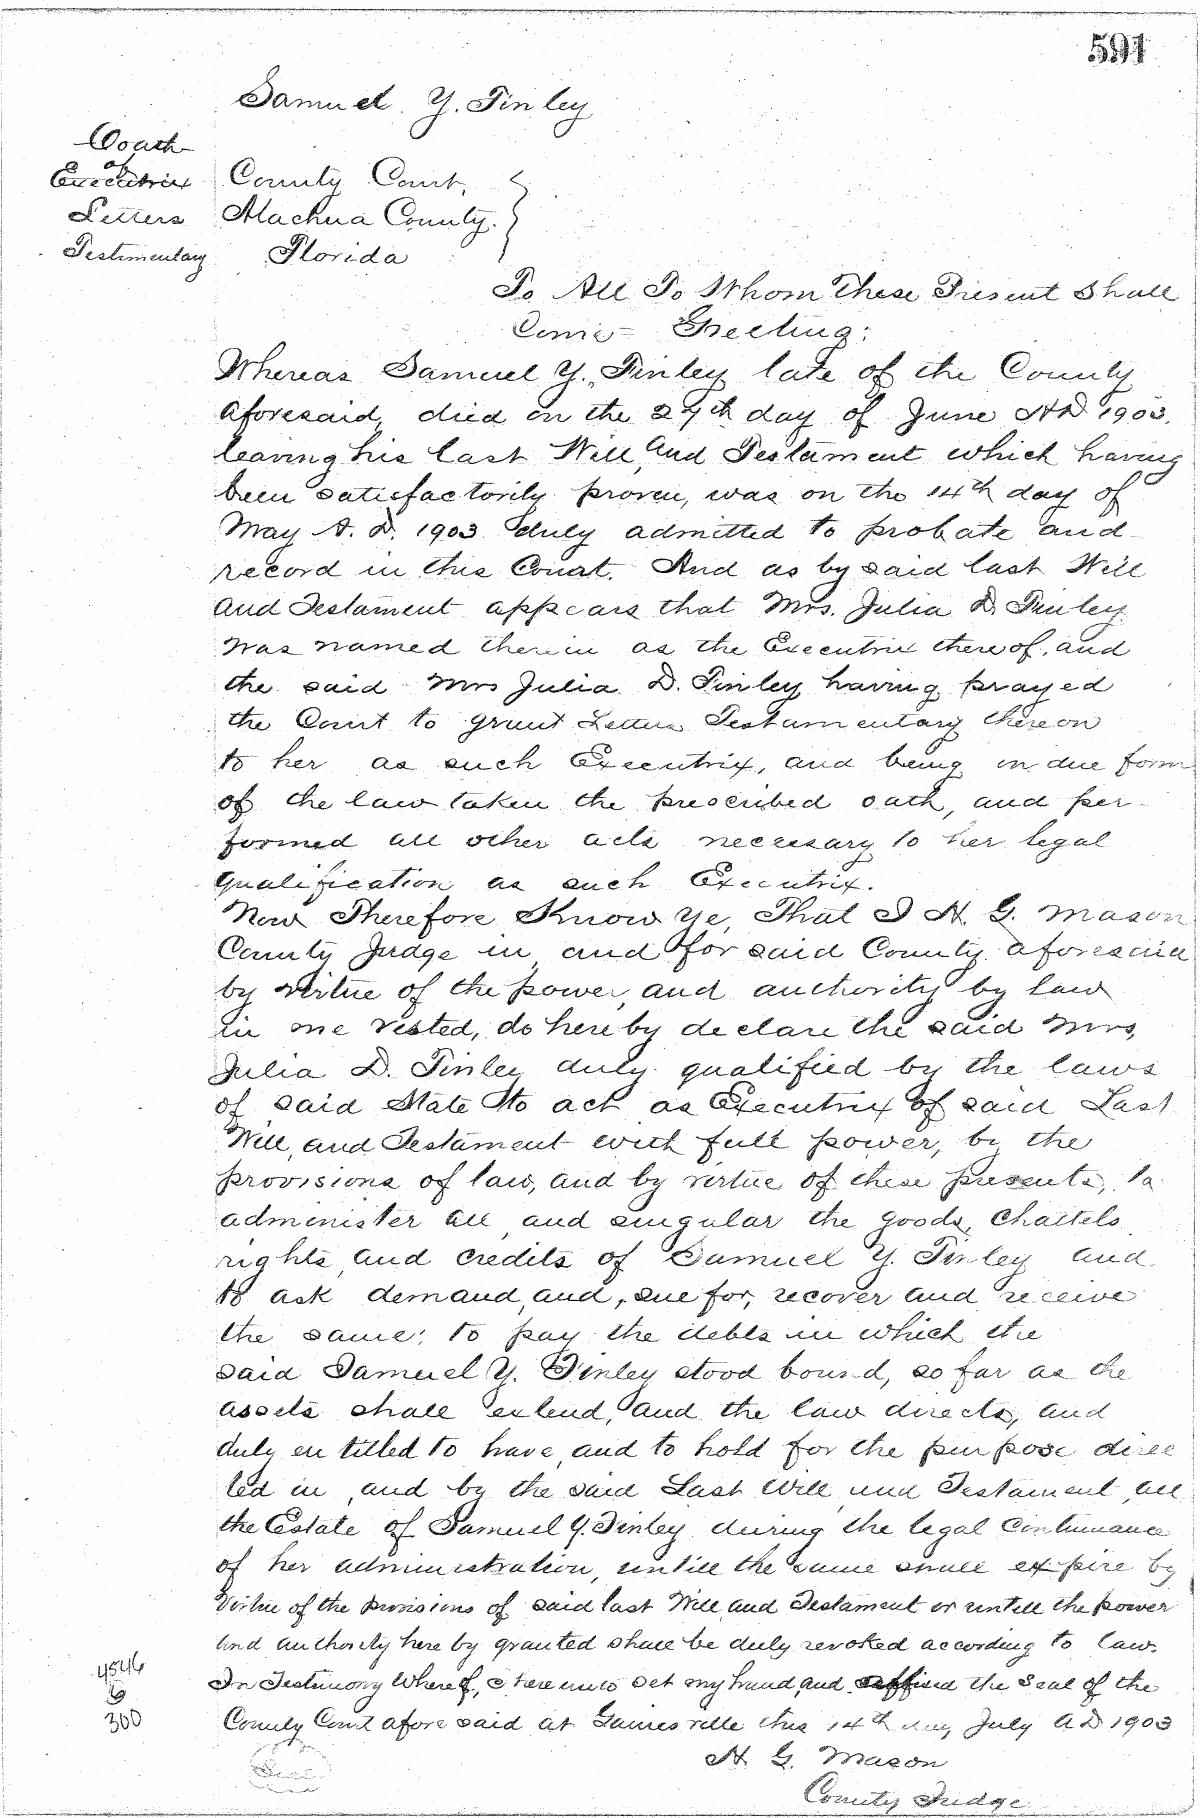 591
Samuel Y. Tinley
Oath
of
Executrix
Letters
Testimentary
County Court,
Alachua County.
Florida
To All To Whom These Present Shall
Come = Greeting:
Whereas Samuel Y. Tinley late of the County
aforesaid, died on the 27th day of June AD 1903.
leaving his last Will, and Testament which having
been satisfactorily proven, was on the 14th day of
May A. D. 1903 duly admitted to probate and
record in this Court. And as by said last Will
and Testament appears that Mrs. Julia D. Tinley
was named therein as the Executrix thereof, and
the said Mrs Julia D. Tinley having prayed
the Court to grant Letters Testamentary thereon
to her as such Executrix, and being in due form
of the law taken the prescribed oath, and per-
formed all other acts necessary to her legal
qualification as such Executrix.
Now Therefore Know Ye, That I H. G. Mason
County Judge in, and for said County aforesaid
by virtue of the power, and authority by law
in me vested, do hereby declare the said Mrs,
Julia D. Tinley duly qualified by the laws
of said State to act as Executrix of said Last
Will, and Testament with full power, by the
provisions of law, and by virtue of these presents, to
administer all, and singular the goods, chattels
rights, and credits of Samuel Y. Tinley and
to ask demand, and, sue for, recover and receive
the same; to pay the debts in which the
said Samuel Y. Tinley stood bound, so far as the
assets shall extend, and the law directs, and
duly entilled to have, and to hold for the purpose direc
ted in, and by the said Last Will, and Testament, all
the Estate of Samuel Y. Tinley during the legal continuance
of her administration, untill the same shall expire by
Virtue of the provisions of said last Will, and Testament or untill the power
and authority here by granted shall be duly revoked according to law.
In Testimony Whereof, I hereunto set my hand, and affixed the Seal of the
County Court afore said at Gainesville this 14th day July AD 1903
4546
6
300
Seal
H. G. Mason
County Judge